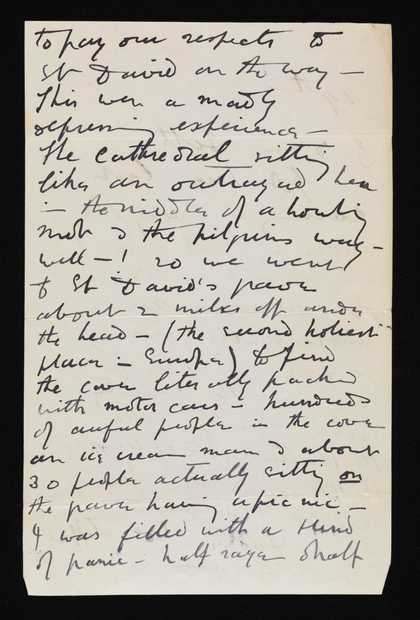 to pay our respects to
St David on the way —
This was a madly
depressing experience —
The Cathedral sitting
like an outraged hen
in the middle of a howling
mob & the pilgrims way —
well — ! so we went
to St David's grave
about 2 miles off under
the head — (the second holiest
place in Europe) to find
the cove literally packed
with motor cars — hundreds
of awful people in the cove
an ice cream man & about
30 people actually sitting on
the grave having a picnic —
I was filled with a kind
of panic — half rage & half